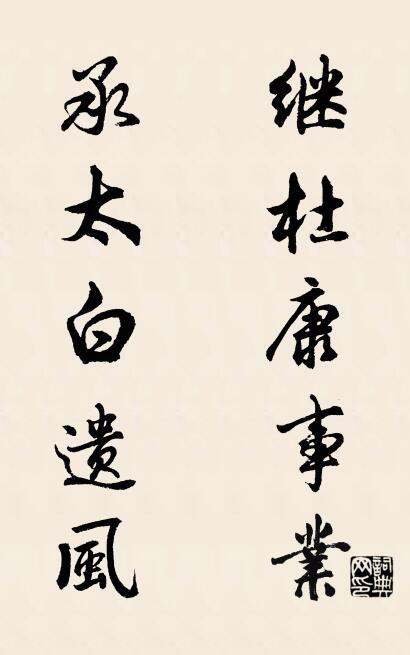 继杜康事業
承太白遗風
詞典网印